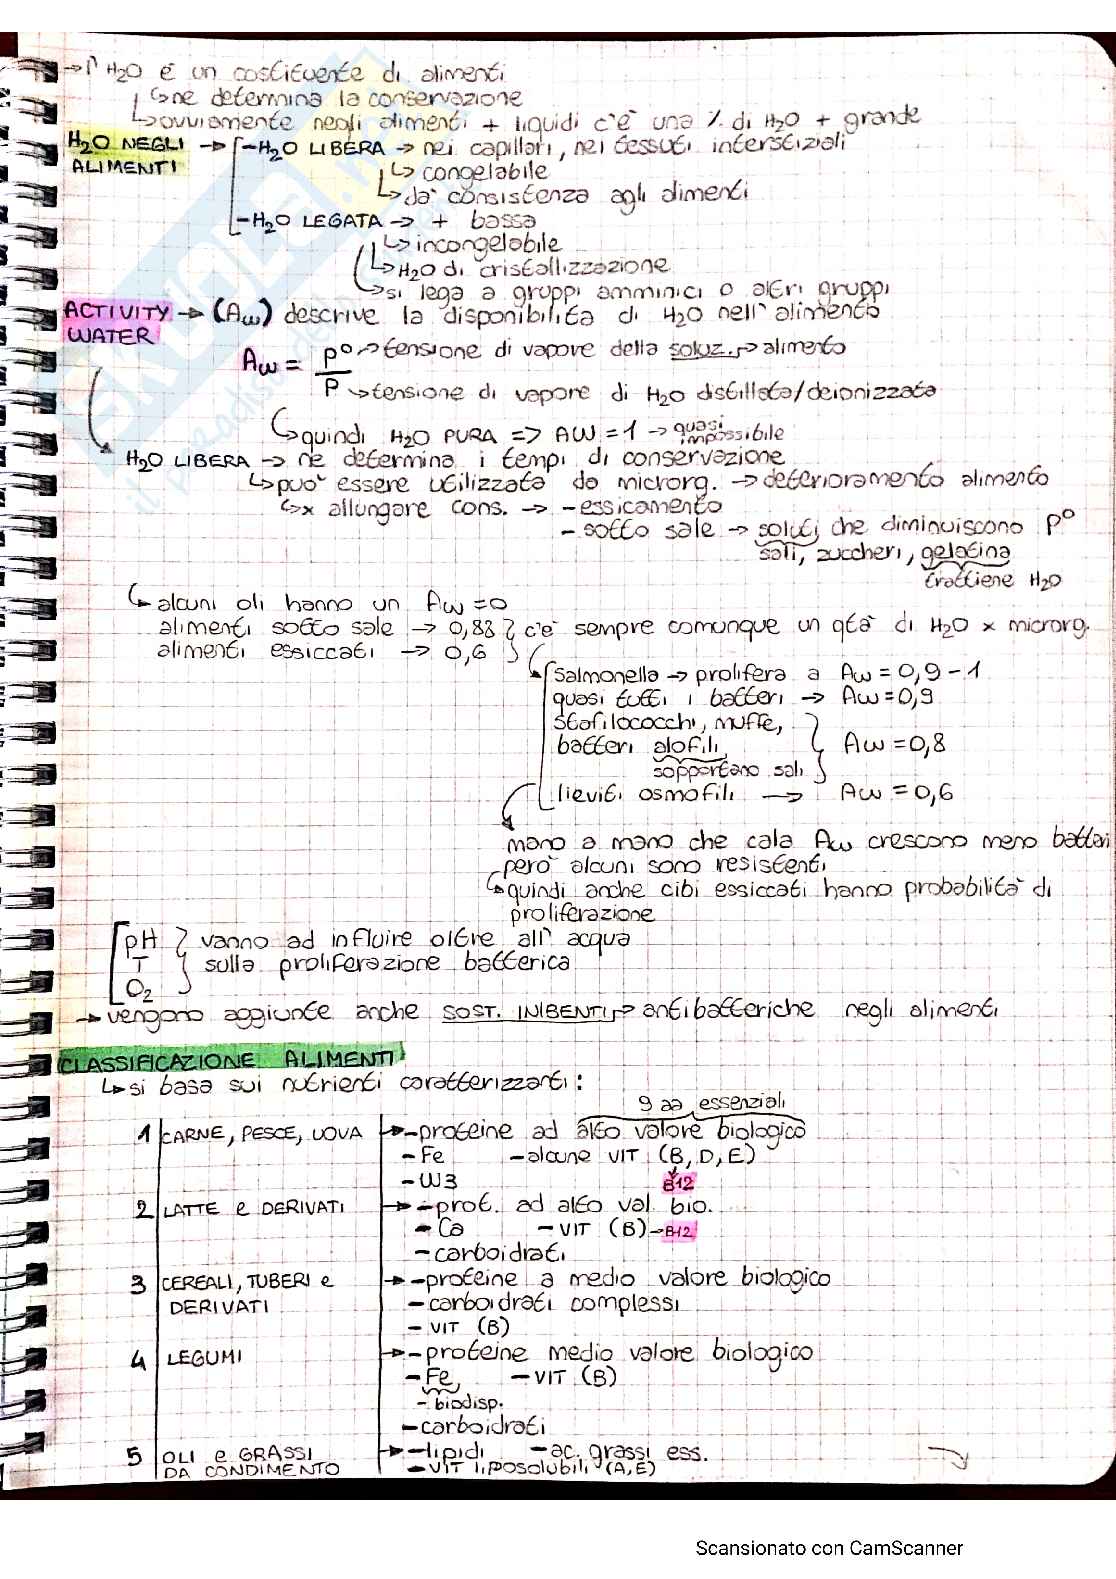 → l'H2O è un costituente di alimenti
↳ ne determina la conservazione
↳ ovviamente negli alimenti + liquidi c'è una % di H2O + grande
H2O NEGLI ALIMENTI → - H2O LIBERA → nei capillari, nei tessuti interstiziali
↳ congelabile
↳ da' consistenza agli alimenti
- H2O LEGATA → + bassa
↳ incongelabile
↳ H2O di cristallizzazione
↳ si lega a gruppi amminici o altri gruppi
ACTIVITY WATER → (Aw) descrive la disponibilità di H2O nell'alimento
Aw = P° / P
P° → tensione di vapore della soluz. → alimento
P → tensione di vapore di H2O distillata/deionizzata
↳ quindi H2O PURA => AW = 1 → quasi impossibile
H2O LIBERA → ne determina i tempi di conservazione
↳ può essere utilizzata da microrg. → deterioramento alimento
↳ x allungare cons. → - essicamento
- sotto sale → soluti che diminuiscono P°
sali, zuccheri, gelatina
trattiene H2O
↳ alcuni oli hanno un Aw = 0
alimenti sotto sale → 0,88 } c'è sempre comunque un qta di H2O x microrg.
alimenti essiccati → 0,6
Salmonella → prolifera a Aw = 0,9 - 1
quasi tutti i batteri → Aw = 0,9
stafilococchi, muffe,
batteri alofili } Aw = 0,8
sopportano sali
lieviti osmofili → Aw = 0,6
mano a mano che cala Aw crescono meno batteri
però alcuni sono resistenti
↳ quindi anche cibi essiccati hanno probabilità di
proliferazione
pH } vanno ad influire oltre all'acqua
T sulla proliferazione batterica
O2
→ vengono aggiunte anche SOST. INIBENTI → antibatteriche negli alimenti
CLASSIFICAZIONE ALIMENTI
↳ si basa sui nutrienti caratterizzanti:
9 aa essenziali
1 CARNE, PESCE, UOVA → - proteine ad alto valore biologico
- Fe - alcune VIT (B, D, E)
- W3 B12
2 LATTE e DERIVATI → - prot. ad alto val. bio.
- Ca - VIT (B) → B12
- carboidrati
3 CEREALI, TUBERI e → - proteine a medio valore biologico
DERIVATI - carboidrati complessi
- VIT (B)
4 LEGUMI → - proteine medio valore biologico
- Fe - VIT (B)
- biodisp.
- carboidrati
5 OLI e GRASSI → - lipidi - ac. grassi ess.
DA CONDIMENTO - VIT liposolubili (A, E)
Scansionato con CamScanner